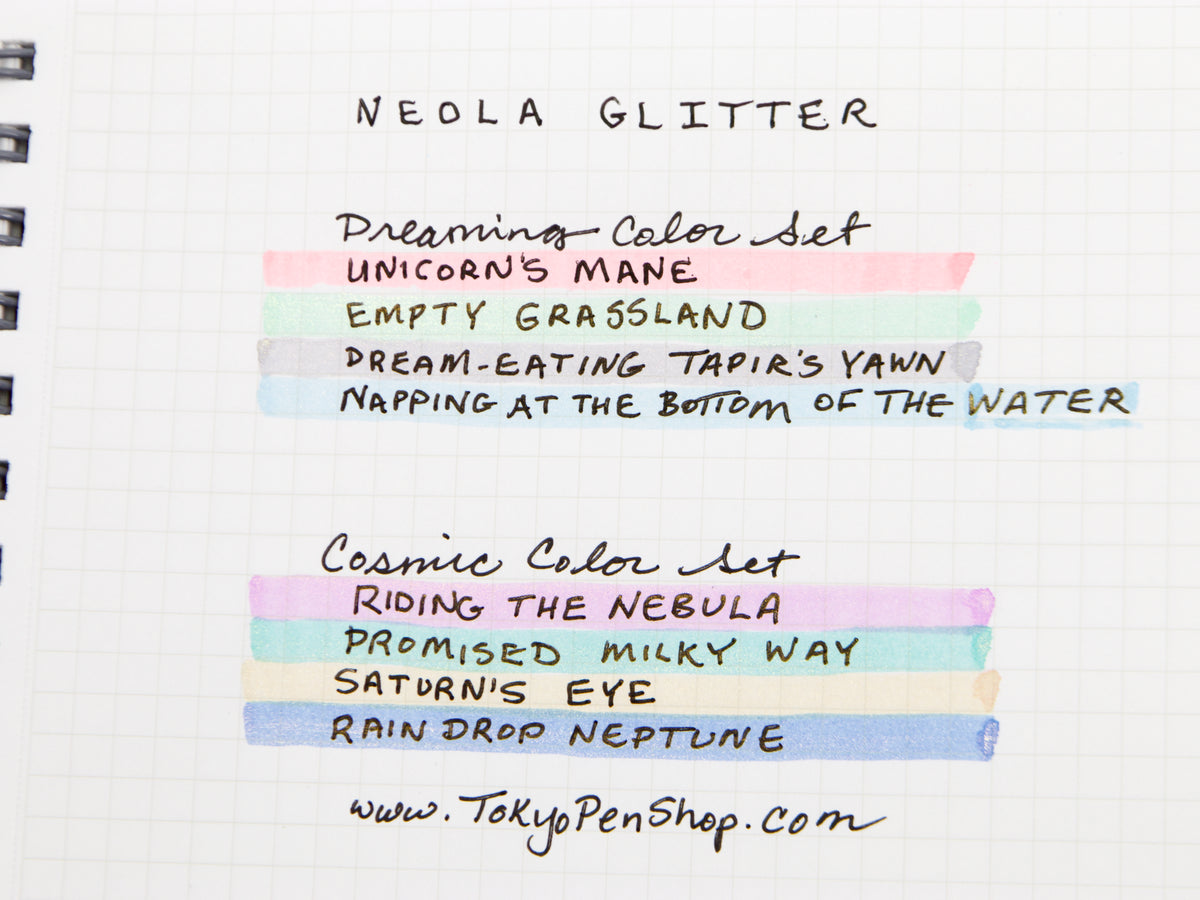 NEOLA GLITTER
Dreaming Color Set
UNICORN'S MANE
EMPTY GRASSLAND
DREAM-EATING TAPIR'S YAWN
NAPPING AT THE BOTTOM OF THE WATER
Cosmic Color Set
RIDING THE NEBULA
PROMISED MILKY WAY
SATURN'S EYE
RAIN DROP NEPTUNE
www.TokyoPenShop.com